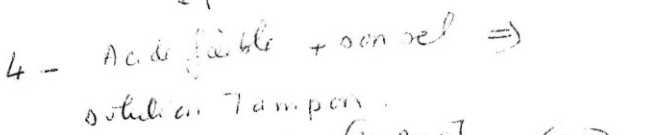 4 - Acide faible + son sel ⇒
solution Tampon.